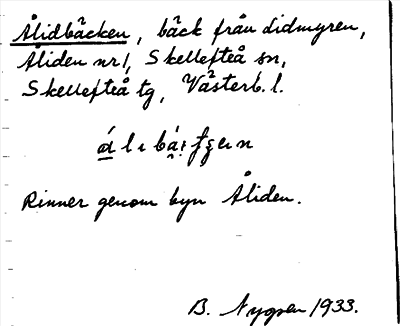 Ålidbäcken, bäck från Lidmyren,
Åliden nr 1, Skellefteå sn,
Skellefteå tg, Västerb. l.
Rinner genom byn Åliden.
B. 1933.